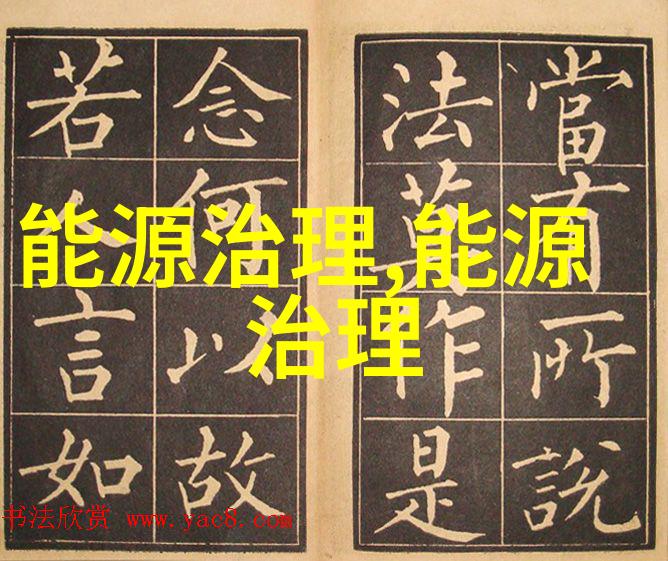 能源治理,能源
治理
當有所說
法莫作是
念何以故
若人言如
书法欣赏 www.yac8.com